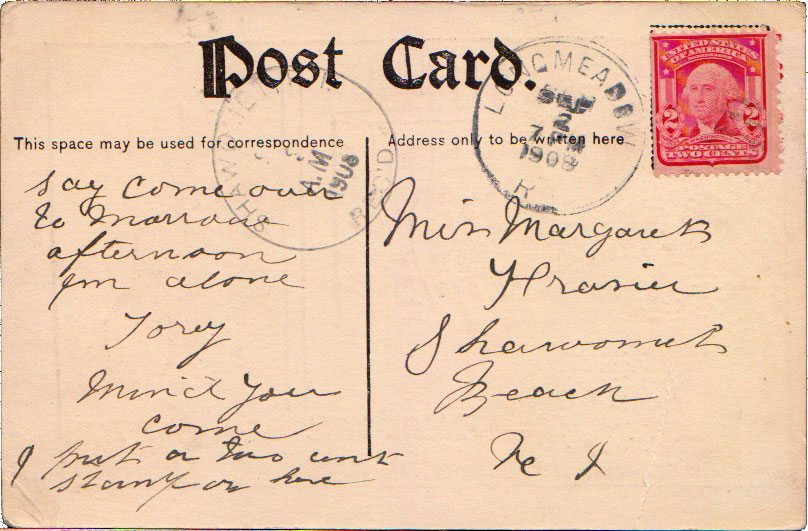 Post Card.
This space may be used for correspondence
Address only to be written here
LONGMEADOW
SEP
2
1908
R
SHAWOMET
A.M
1908
R.I.
UNITED STATES
OF AMERICA
2 2
POSTAGE
TWO CENTS
say come over
to morrow
afternoon
Im alone
Torey
Mind you
come
I put a two cent
stamp on here
Miss Margaret
Frasier
Shawomet
Beach
R I